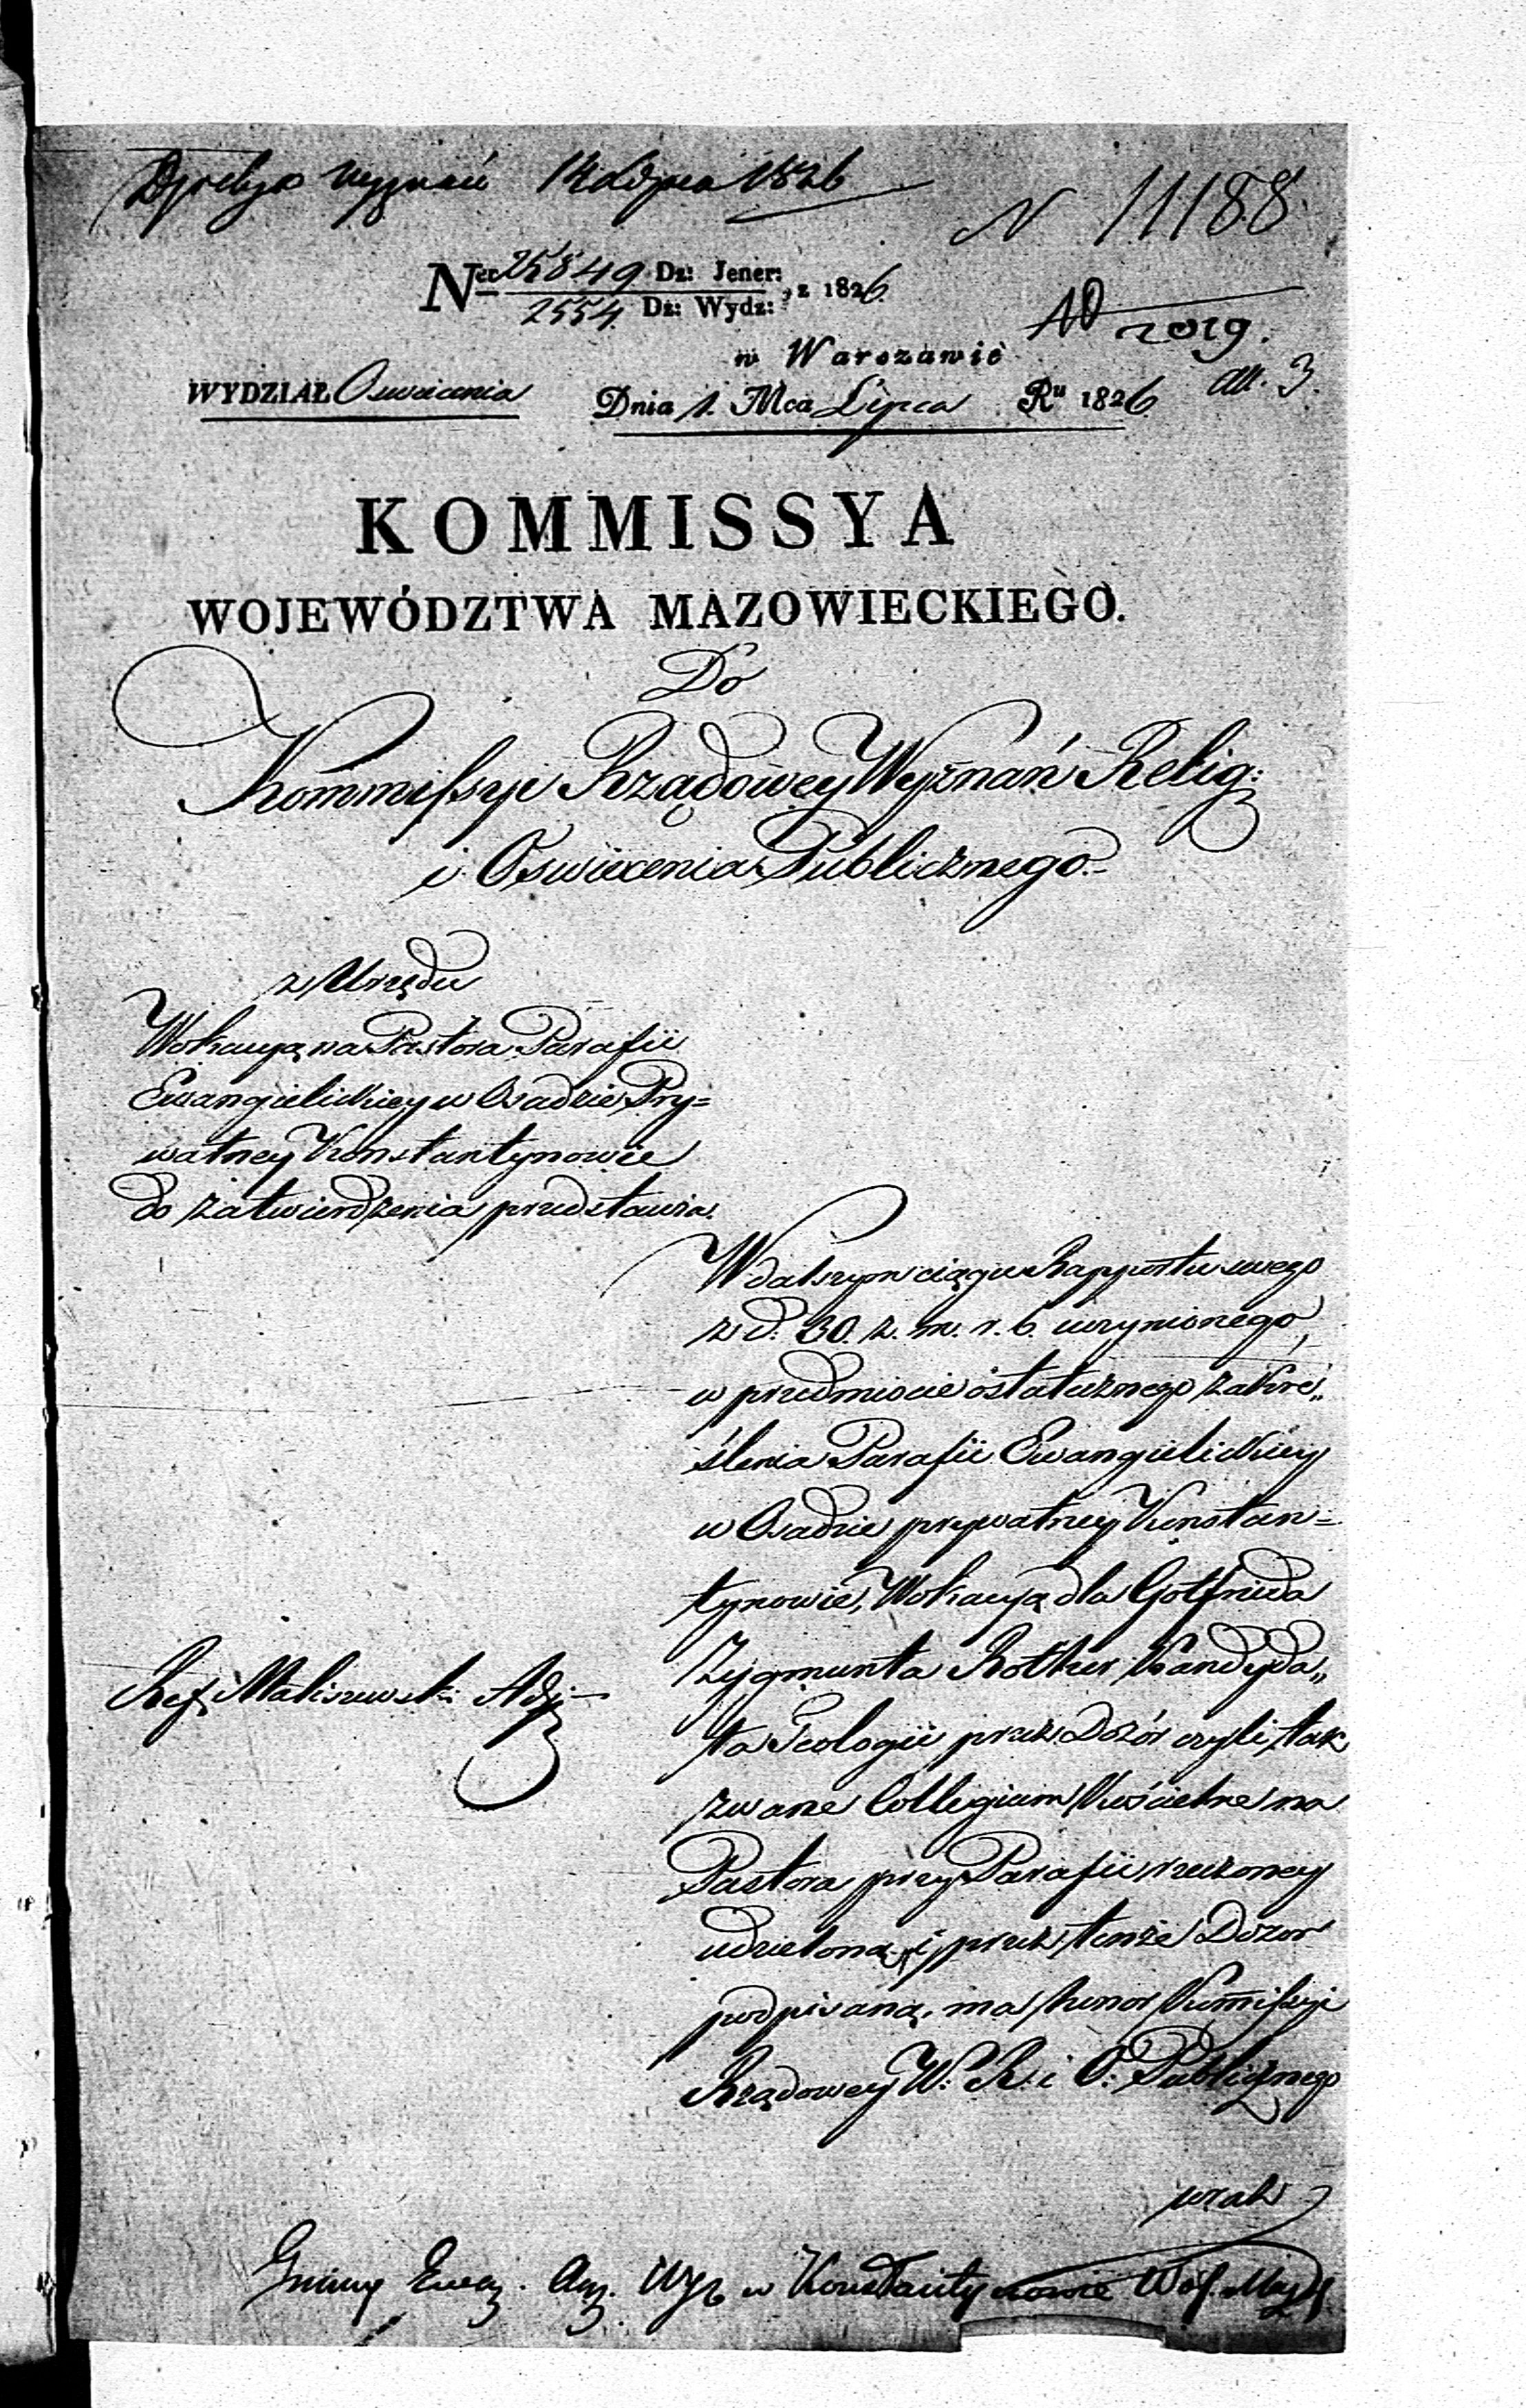 Wyznań 14 Lipca 1826
N 11188.
Ner 25849 Dz: Jener: z 1826.
2554. Dz: Wydz:
AD 2019.
all. 3.
w Warszawie
WYDZIAŁ Oswiecenia
Dnia 1. Mca Lipca Ru 1826
KOMMISSYA
WOJEWÓDZTWA MAZOWIECKIEGO.
Do
Kommissyi Rządowey Wyznań Relig:
i Oswiecenia Publicznego.
z Urzędu
Wokacyą na Pastora Parafii
Ewangielickiey w Osadzie Pry=
watney Konstantynowie
do zatwierdzenia przedstawia.
W dalszym ciągu Rapportu swego
z d. 30. z. m. r. b. uczynionego,
w przedmiocie ostatecznego zakre„
ślenia Parafii Ewangielickiey
w Osadzie prywatney Konstan=
tynowie, Wokacyą dla Gotfrieda
Zygmunta Rother Kandyda„
ta Teologii przez Dozór czyli tak
zwane Collegium Kościelne na
Pastora przy Parafii rzeczoney
udzieloną i przez tenże Dozor
podpisaną, ma honor Kommissyi
Rządowey W. R. i O. Publicznego
Ref: Maliszewski Adj:
wraz
Gminy Ewang. Aug. Wyz w Konstantynowie Woj. Maz